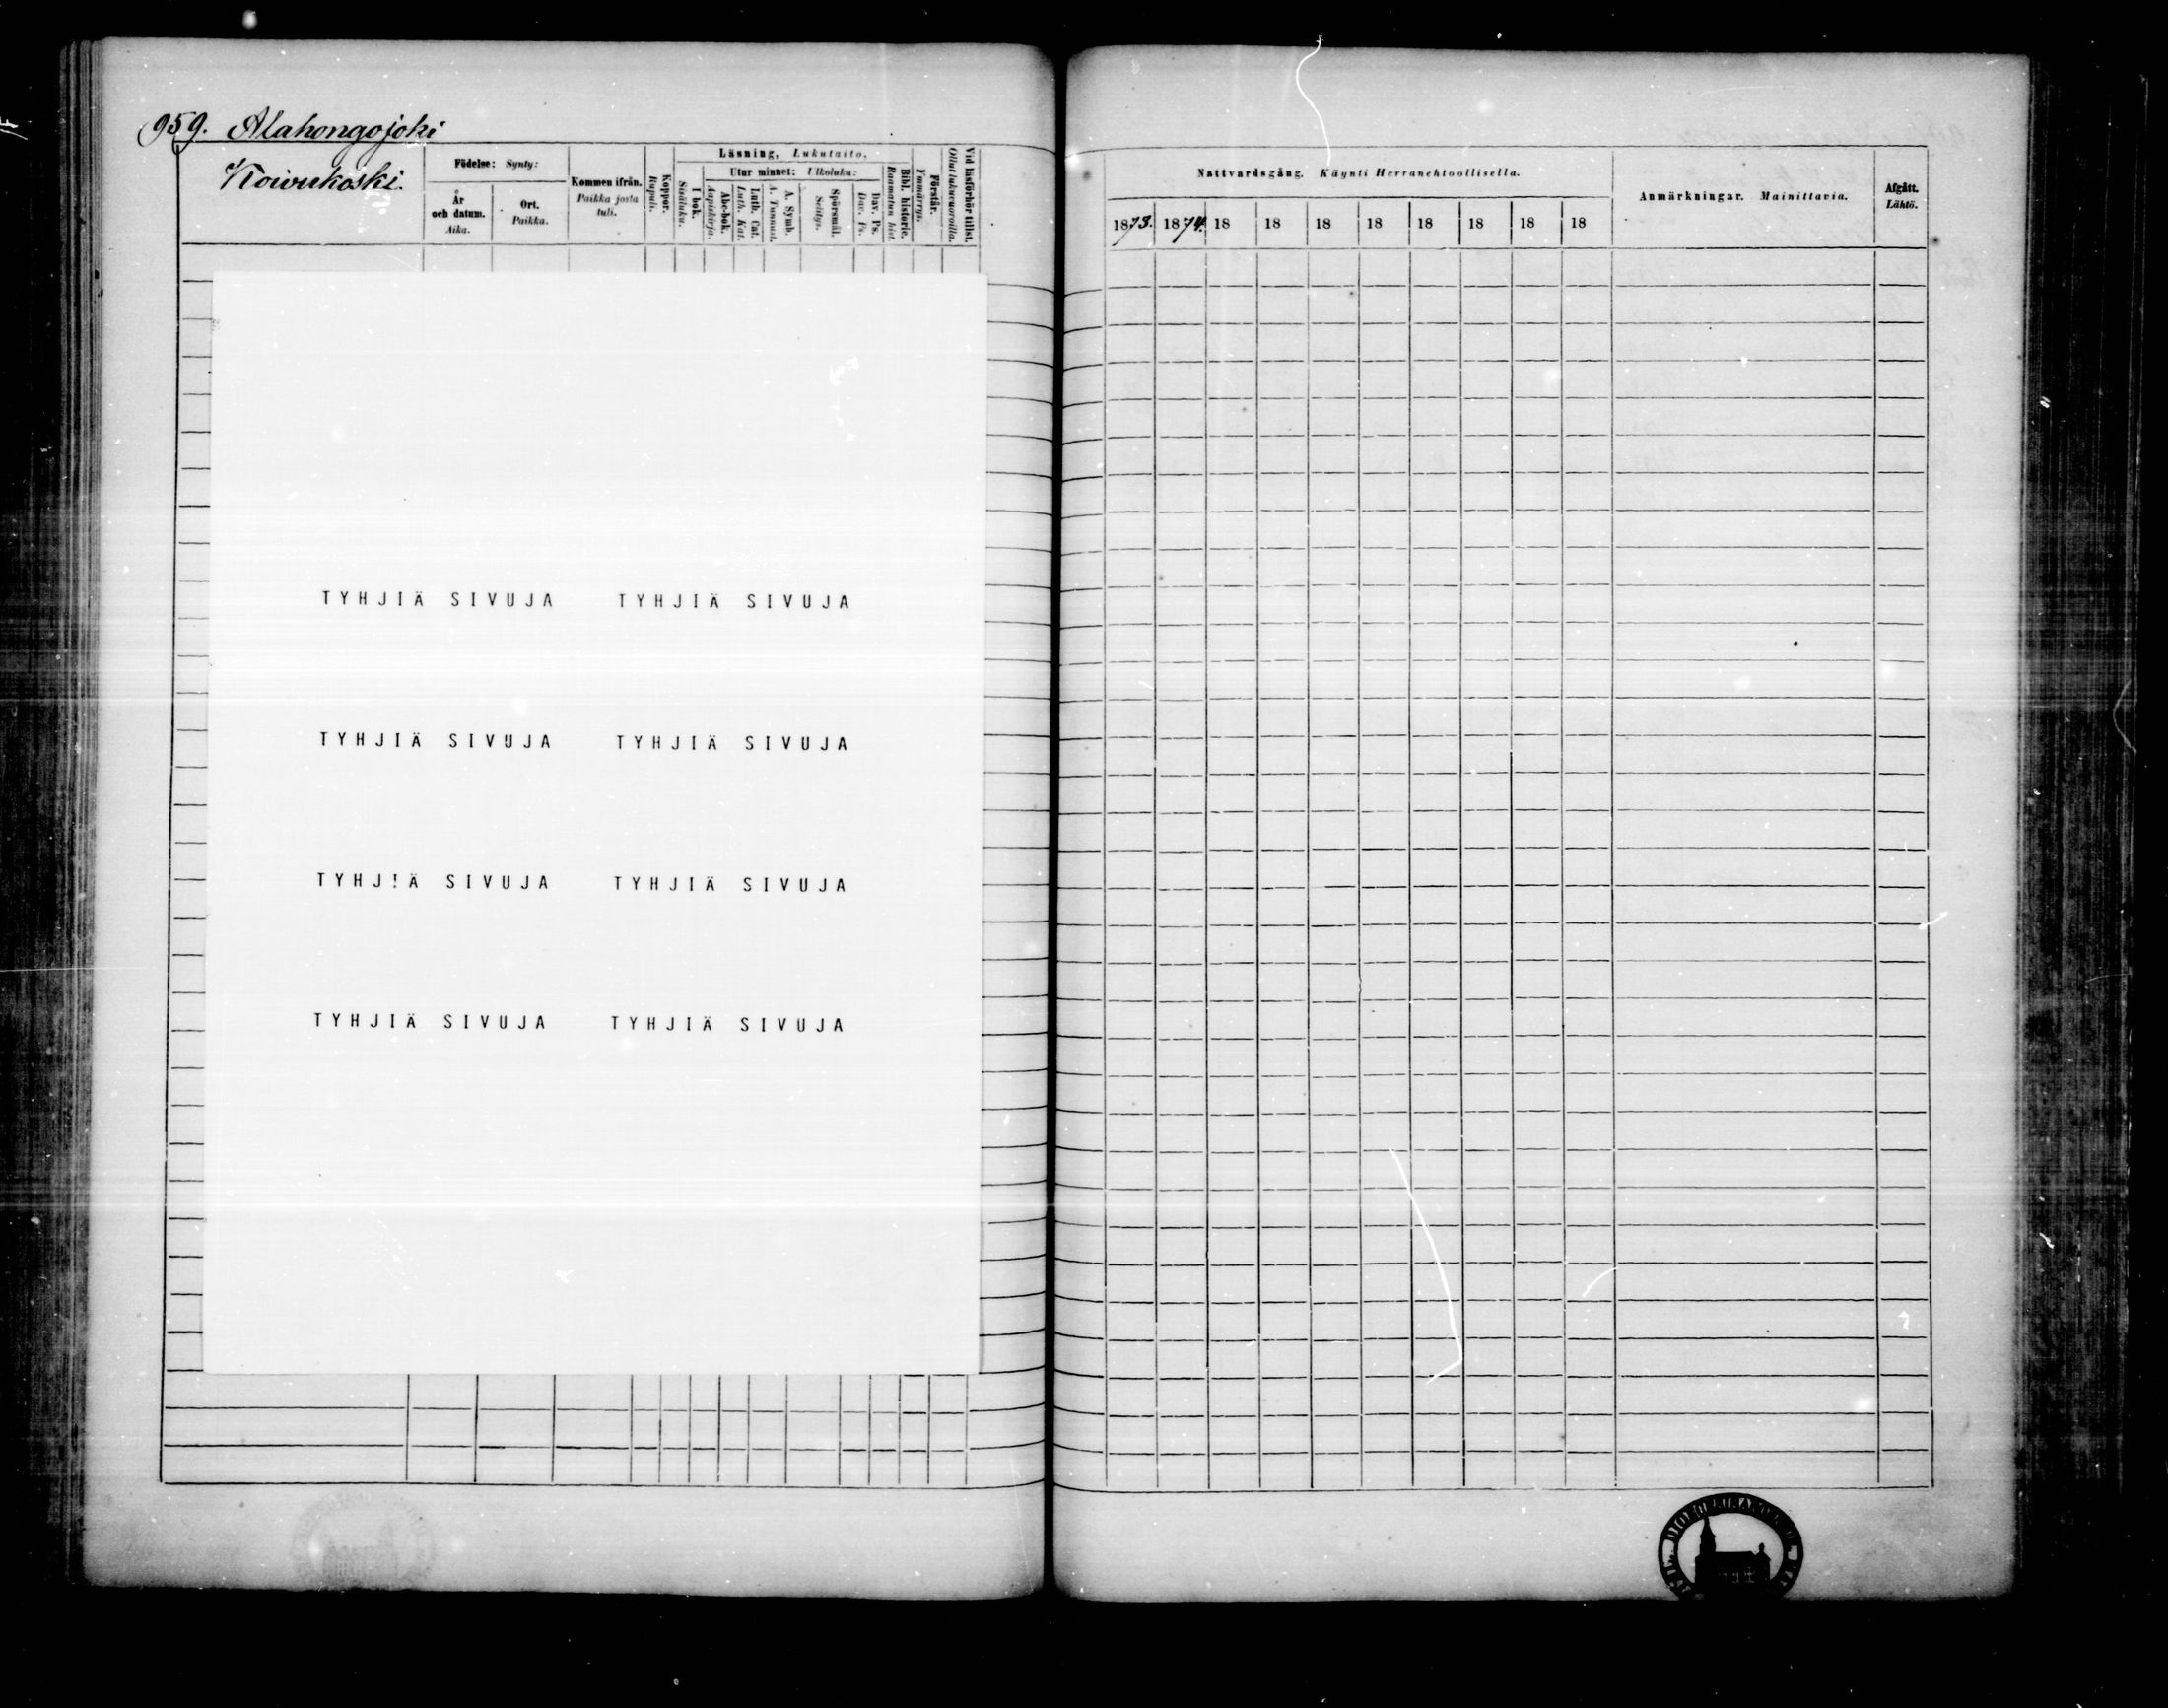 959. Alahongojoki
Koivukoski.
Födelse: Synty:
År och datum. Aika.
Ort. Paikka.
Kommen ifrån. Paikka josta tuli.
Koppor. Rupuli.
Läsning, Lukutaito.
I bok. Sisäluku.
Utur minnet: Ulkoluku:
Abc-bok. Aapiskirja.
Luth. Cat. Luth. Kat.
A. Symb. A. Tunnust.
Spörsmål. Selitys.
Dav. Ps. Dav. Ps.
Bibl. historie. Raamatun hist.
Förstår. Ymmärrys.
Vid läsförhör tillst. Ollut lukuvuoroilla.
TYHJIÄ SIVUJA TYHJIÄ SIVUJA
TYHJIÄ SIVUJA TYHJIÄ SIVUJA
TYHJIÄ SIVUJA TYHJIÄ SIVUJA
TYHJIÄ SIVUJA TYHJIÄ SIVUJA
Nattvardsgång. Käynti Herranehtoollisella.
1873. 1874. 18 18 18 18 18 18 18 18
Anmärkningar. Mainittavia.
Afgått. Lähtö.